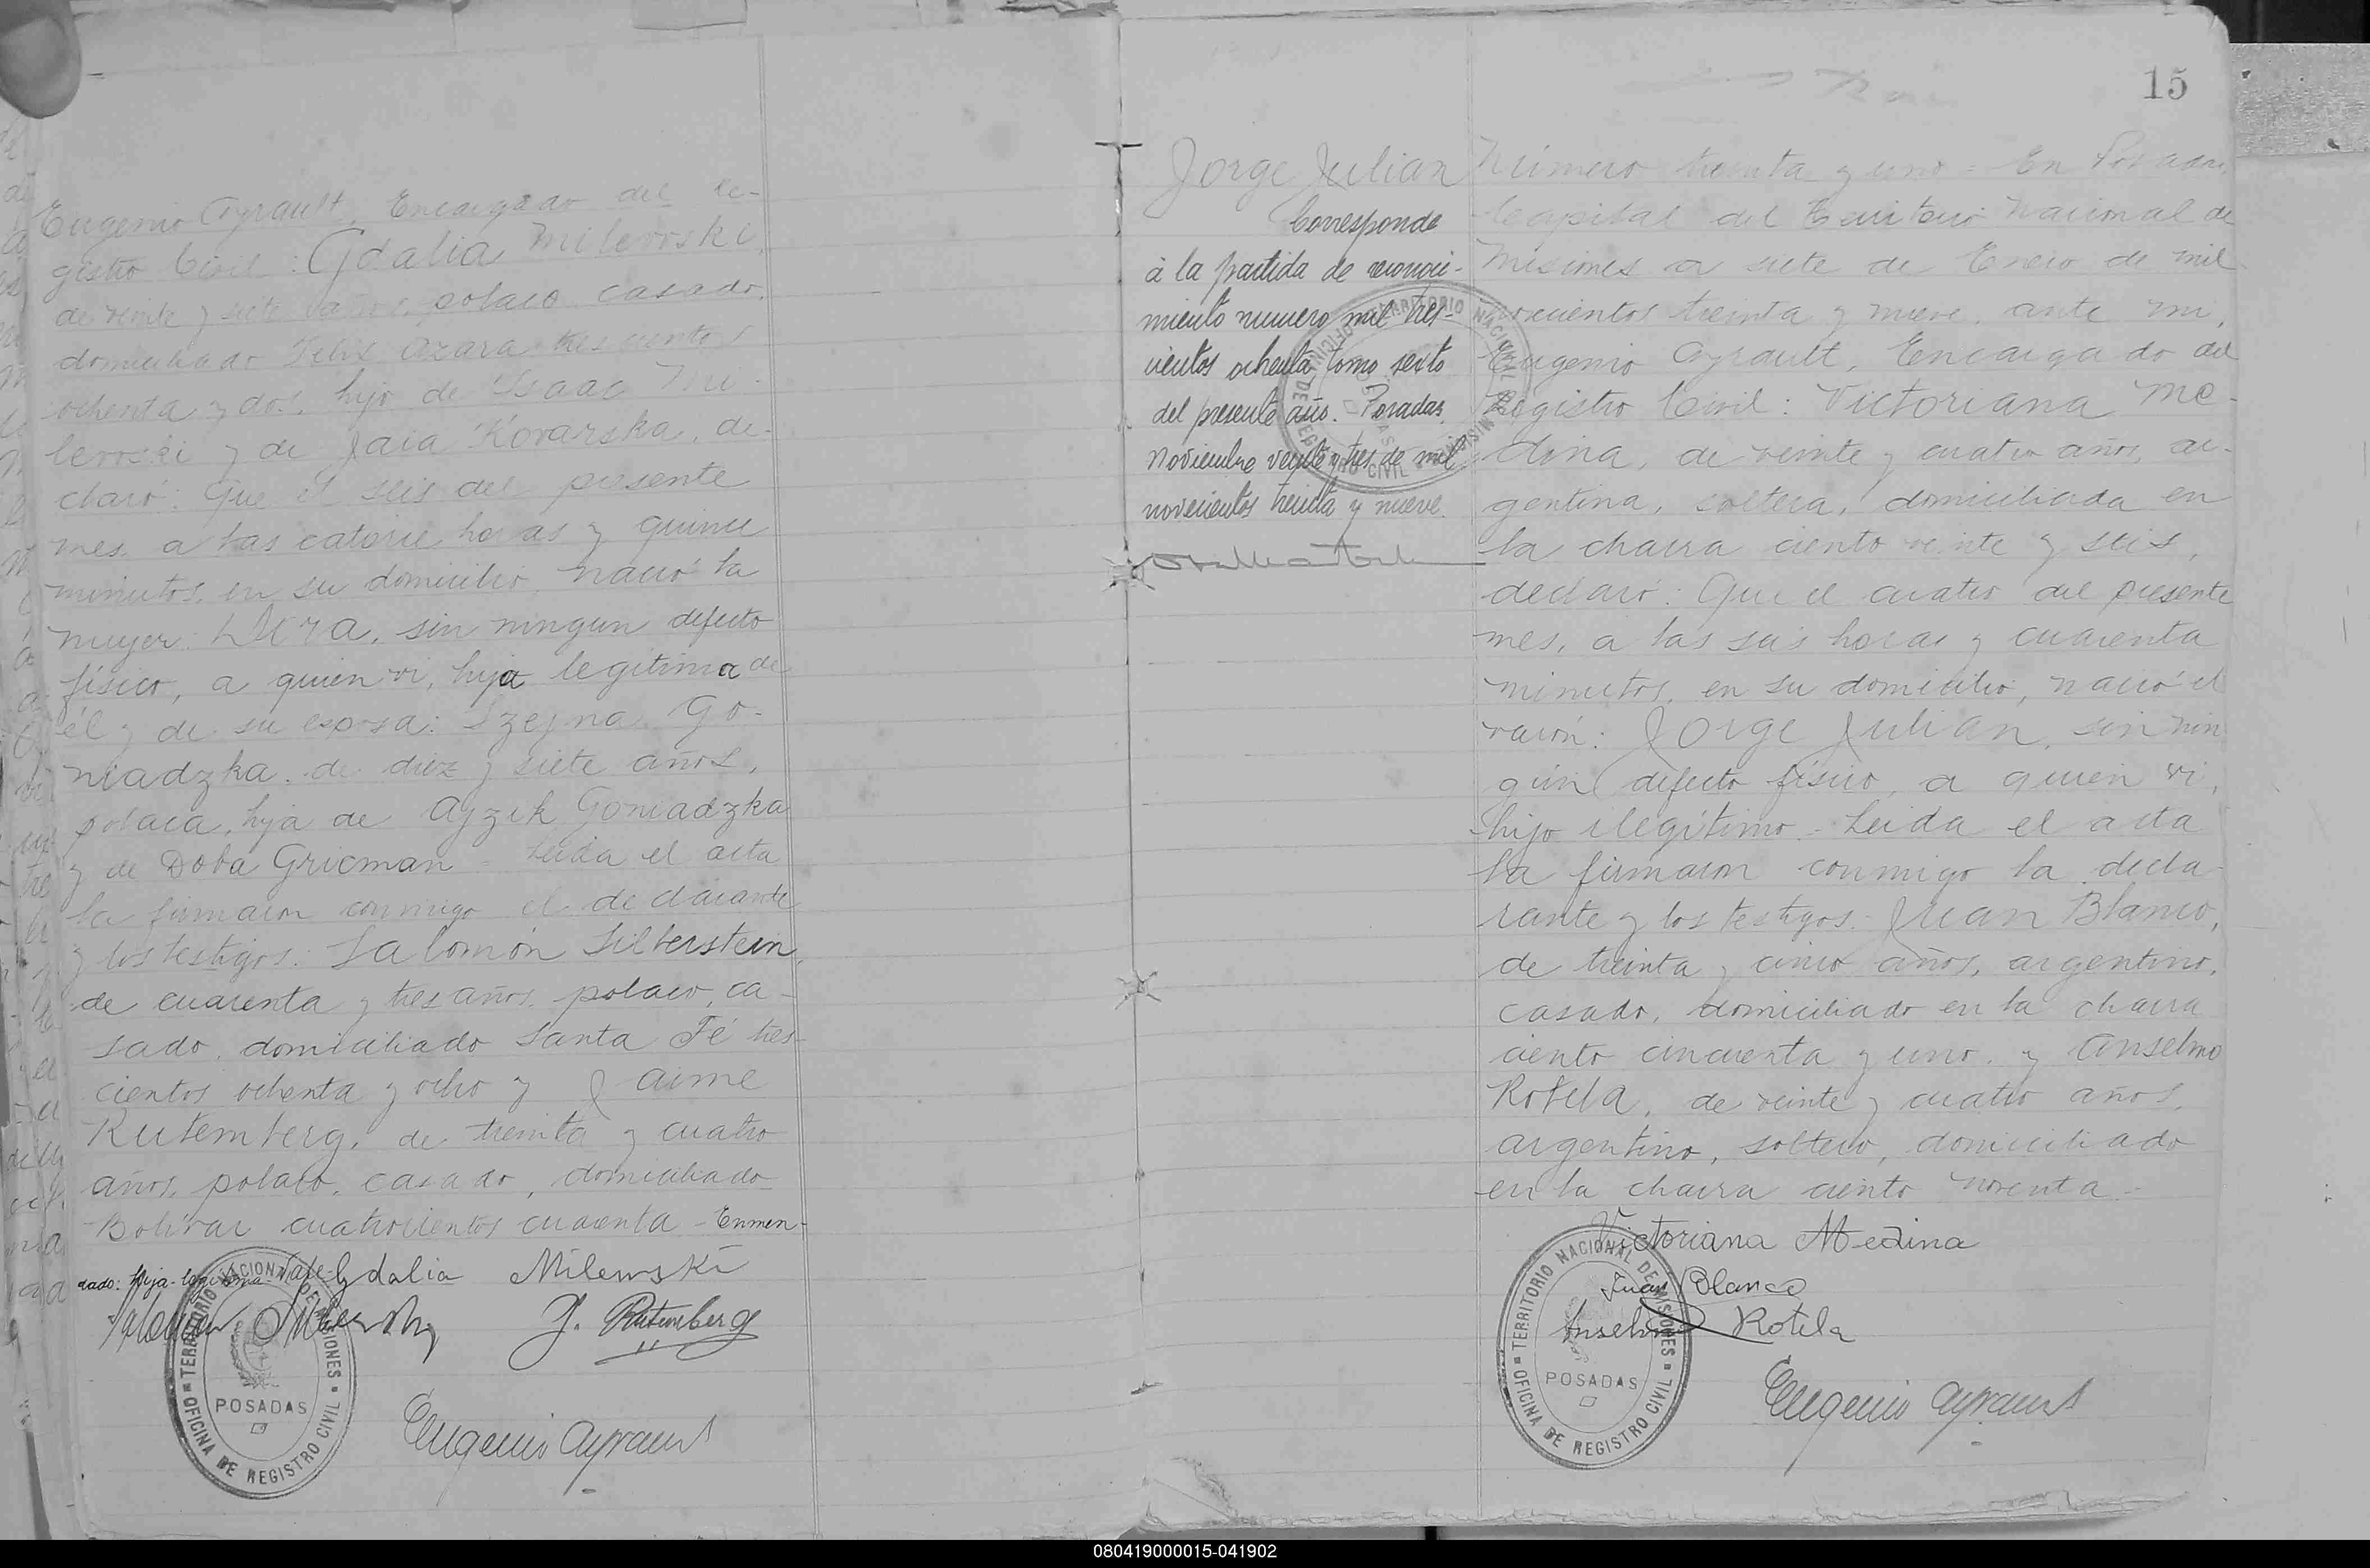 Eugenio Ayrault, Encargado del Re-
gistro Civil: Gdalia Milevoski,
de veinte y siete años, polaco, casado,
domiciliado Felix Azara trescientos
ochenta y dos, hijo de Isaac Mi-
levoski y de Jaia Kovarska, de-
claró: Que el seis del presente
mes, a las catorce horas y quince
minutos, en su domicilio, nació la
mujer: Dora, sin ningun defecto
físico, a quien vi, hija legitima de
él y de su esposa: Szejna Go-
niadzka, de diez y siete años,
polaca, hija de Ajzik Goniadzka
y de Doba Gricman = Leida el acta
la firmaron conmigo el declarante
y los testigos: Salomón Silberstein,
de cuarenta y tres años, polaco, ca-
sado, domiciliado Santa Fé tres-
cientos ochenta y ocho y Jaime
Rutemberg, de treinta y cuatro
años, polaco, casado, domiciliado
Bolivar cuatrocientos cuarenta - Enmen-
dado: hija - legitima - Vale - Gdalia Milewski
J. Rutemberg
Eugenio Ayrault
TERRITORIO NACIONAL DE MISIONES
POSADAS
OFICINA DE REGISTRO CIVIL
15
Jorge Julian
Corresponde
à la partida de reconoci-
miento numero mil tres-
cientos ochenta tomo sexto
del presente año. Posadas,
Noviembre veinte y tres de mil
novecientos treinta y nueve.
Número treinta y uno = En Posadas,
Capital del Territorio Nacional de
Misiones a siete de Enero de mil
novecientos treinta y nueve, ante mi,
Eugenio Ayrault, Encargado del
Registro Civil: Victoriana Me-
dina, de veinte y cuatro años, ar-
gentina, soltera, domiciliada en
la chacra ciento veinte y seis,
declaró: Que el cuatro del presente
mes, a las seis horas y cuarenta
minutos, en su domicilio, nació el
varón: Jorge Julian, sin nin
gún defecto físico, a quien vi,
hijo ilegítimo = Leida el acta
la firmaron conmigo la decla-
rante y los testigos: Juan Blanco,
de treinta y cinco años, argentino,
casado, domiciliado en la chacra
ciento cincuenta y uno, y Anselmo
Rotela, de veinte y cuatro años,
argentino, soltero, domiciliado
en la chacra ciento noventa =
Victoriana Medina
Juan Blanco
Anselmo Rotela
Eugenio Ayrault
TERRITORIO NACIONAL DE MISIONES
POSADAS
OFICINA DE REGISTRO CIVIL
080419000015-041902